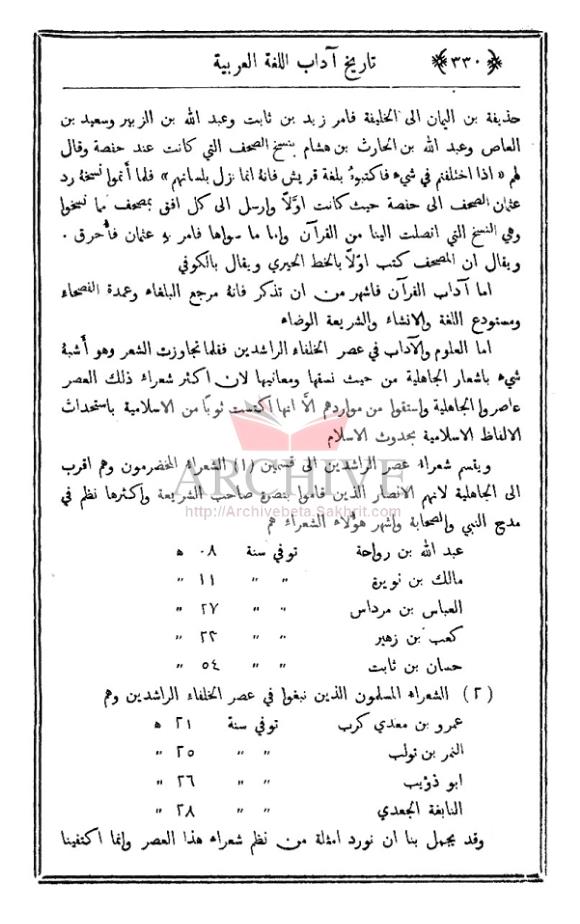 ﴿٣٣٠﴾ تاريخ آداب اللغة العربية
حذيفة بن اليمان الى الخليفة فامر زيد بن ثابت وعبد الله بن الزبير وسعيد بن
العاص وعبد الله بن الحارث بن هشام بنسخ الصحف التي كانت عند حفصة وقال
لهم « اذا اختلفتم في شيء فاكتبوهُ بلغة قريش فانهُ انما نزل بلسانهم » فلما أتموا نسخهُ رد
عثمان الصحف الى حفصة حيث كانت اوّلاً وارسل الى كل افق بمصحف مما نسخوا
وهي النسخ التي اتصلت الينا من القرآن واما ما سواها فامر به عثمان فأُحرق ٠
ويقال ان المصحف كتب اوّلاً بالخط الحيري ويقال بالكوفي
اما آداب القرآن فاشهر من ان تذكر فانهُ مرجع البلغاء وعمدة الفصحاء
ومستودع اللغة والانشاء والشريعة الوضاء
اما العلوم والآداب في عصر الخلفاء الراشدين فقلما تجاوزت الشعر وهو أشبهُ
شيء باشعار الجاهلية من حيث نسقها ومعانيها لان اكثر شعراء ذلك العصر
عاصروا الجاهلية واستقوا من مواردهم الَّا انها اكتست ثوبًا من الاسلامية باستحداث
الالفاظ الاسلامية بحدوث الاسلام
ويقسم شعراء عصر الراشدين الى قسمين (١) الشعراء المخضرمون وهم اقرب
الى الجاهلية لانهم الانصار الذين قاموا بنصرة صاحب الشريعة واكثرها نظم في
مدح النبي والصحابة واشهر هؤلاء الشعراء هم
عبد الله بن رواحة توفي سنة ٠٨ ه
مالك بن نويرة " " ١١ "
العباس بن مرداس " " ٢٧ "
كعب بن زهير " " ٢٢ "
حسان بن ثابت " " ٥٤ "
(٢) الشعراء المسلمون الذين نبغوا في عصر الخلفاء الراشدين وهم
عمرو بن معدي كرب توفي سنة ٢١ ه
النمر بن تولب " " ٢٥ "
ابو ذؤيب " " ٢٦ "
النابغة الجعدي " " ٢٨ "
وقد يجمل بنا ان نورد امثلة من نظم شعراء هذا العصر وانما اكتفينا
ARCHIVE
http://Archivebeta.Sakhrit.com